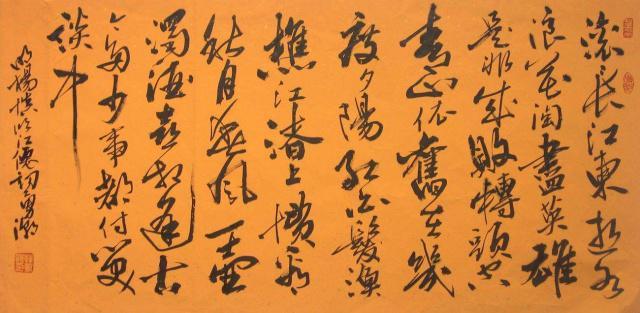 滚長江東逝水
浪花淘盡英雄
是非成敗轉頭空
青山依舊在幾
度夕陽紅白髮漁
樵江渚上慣看
秋月春風一壺
濁酒喜相逢古
今多少事都付笑
談中
明楊慎臨江僊